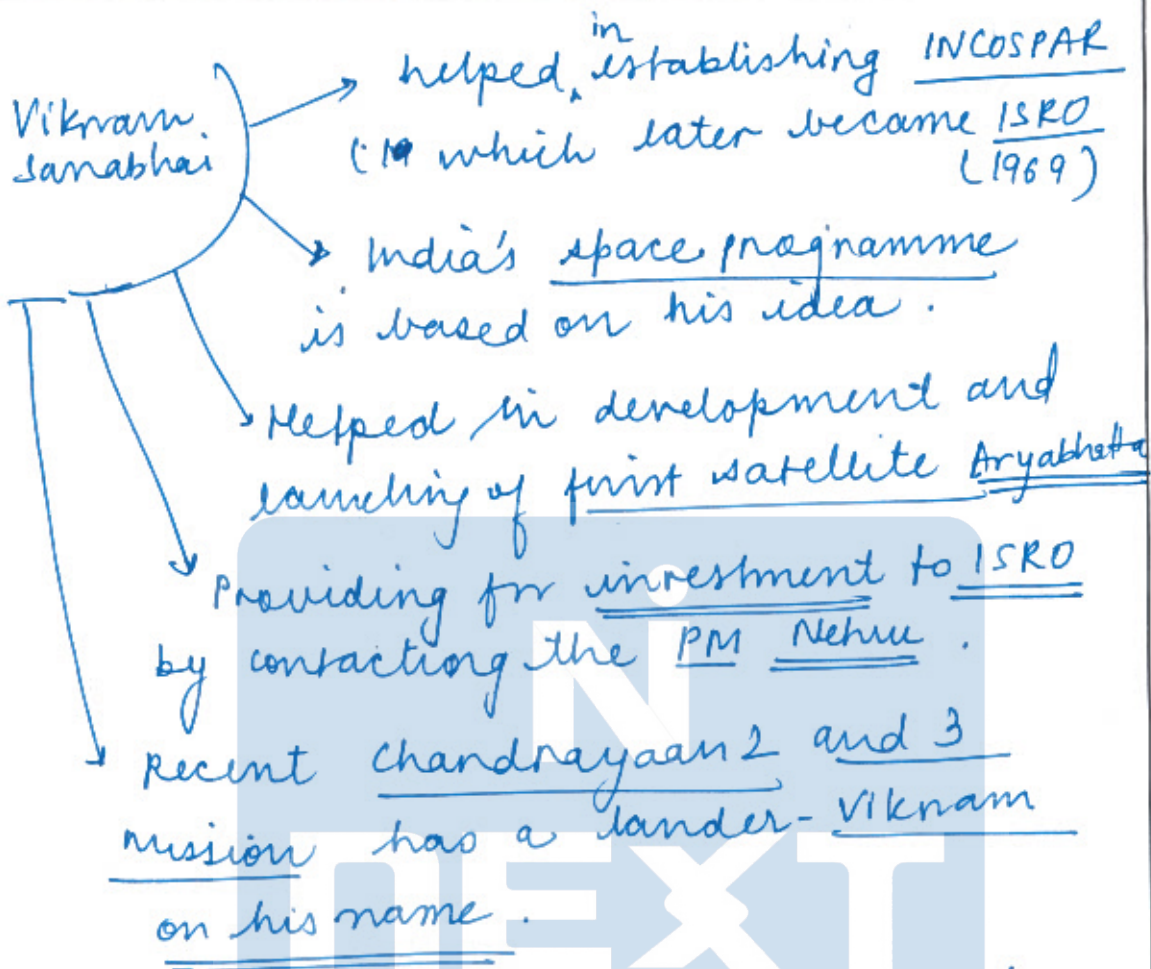 Vikram
Sarabhai
helped in establishing INCOSPAR
( which later became ISRO
(1969)
India's space programme
is based on his idea.
Helped in development and
launching of first satellite Aryabhatta
Providing for investment to ISRO
by contacting the PM Nehru.
Recent Chandrayaan 2 and 3
mission has a lander - Vikram
on his name.
N
NEXT